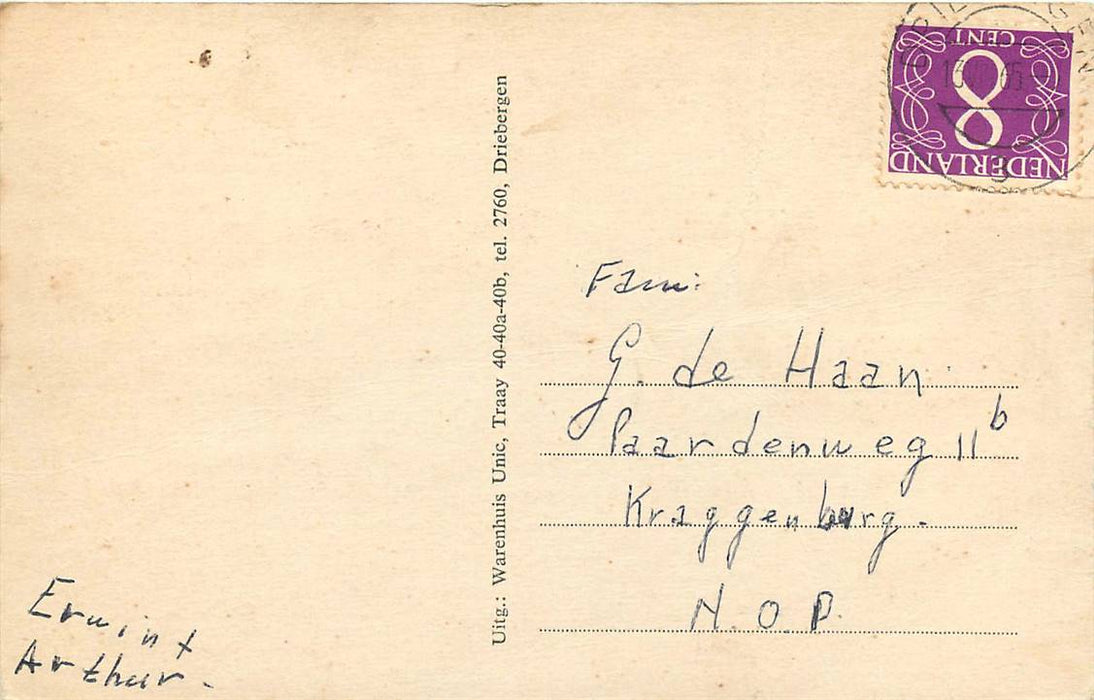 CENT
8
NEDERLAND
3
Uitg.: Warenhuis Unic, Traay 40-40a-40b, tel. 2760, Driebergen
Fam:
G. de Haan
Paardenweg 11 b
Kraggenburg.
N.O.P.
Erwin +
Arthur.